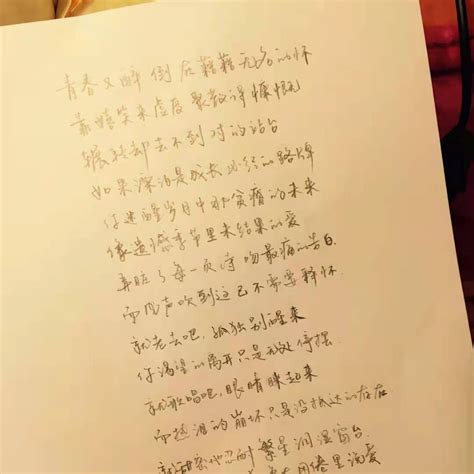 青春又醉倒在籍籍无名的怀
靠嬉笑来虚度聚散得慷慨
辗转却去不到对的站台
如果漂泊是成长必经的路牌
你迷醒岁月中那贫瘠的未来
像遗憾季节里未结果的爱
弄脏了每一页诗吻最痛的告白.
而风声吹到这已不需要释怀.
就老去吧,孤独别醒来
你渴望的离开只是无处停摆.
就歌唱吧,眼睛眯起来
而热泪的崩坏只是没抵达的存在
就甜蜜地忍耐繁星润湿窗台.
困倦里说爱